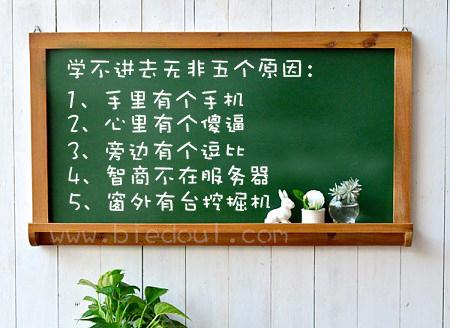 学不进去无非五个原因：
1、手里有个手机
2、心里有个傻逼
3、旁边有个逗比
4、智商不在服务器
5、窗外有台挖掘机
www.biedoul.com